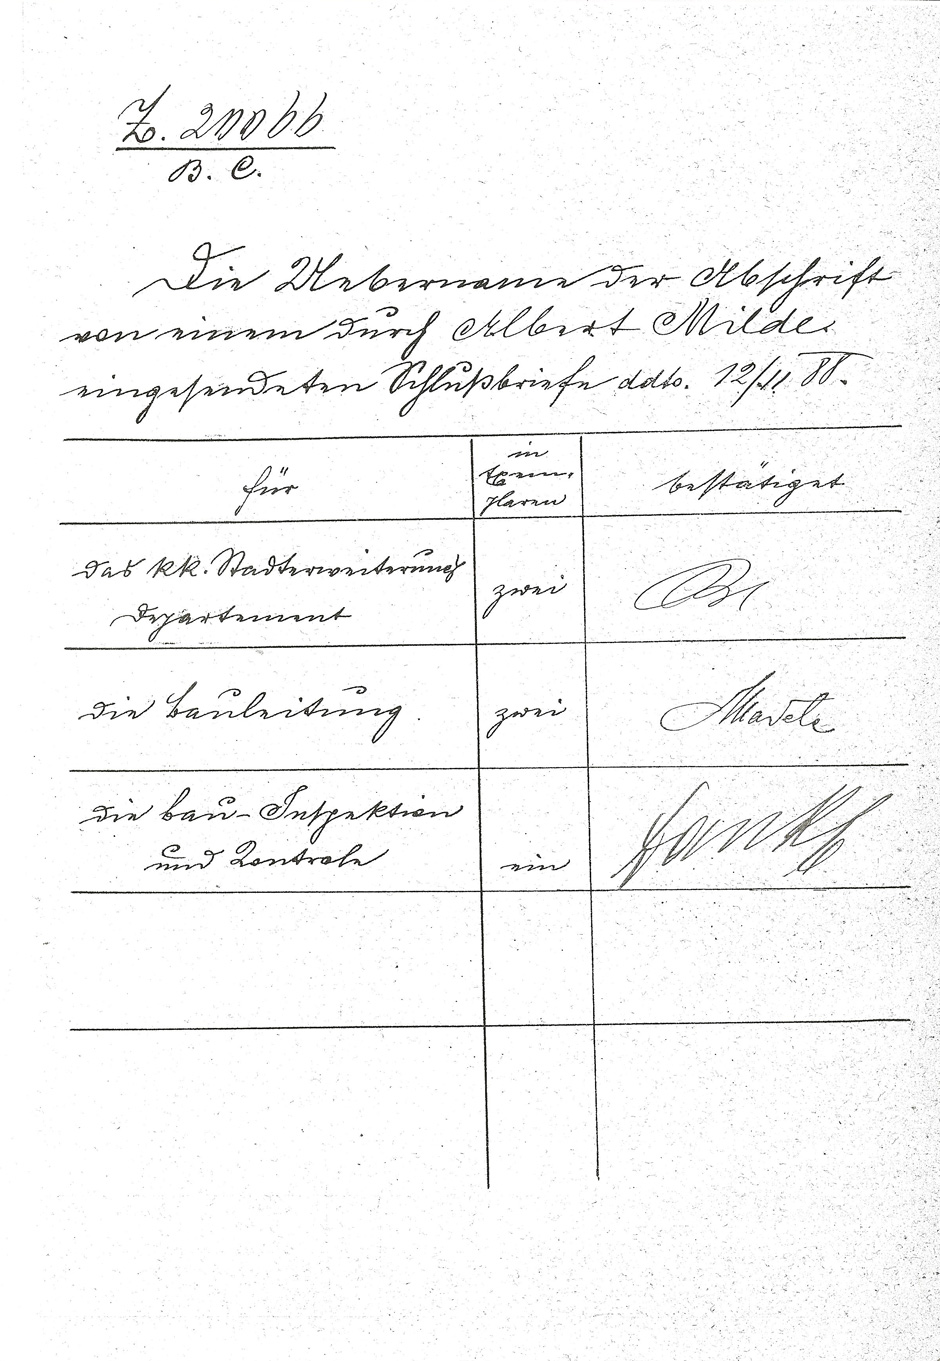 Z. 20066
B. C.
Die Uebername der Abschrift
von einem durch Albert Milde
eingesendeten Schlußbriefe ddto. 12/11 88.
für
in
Exem-
plaren
bestätiget
das kk. Stadterweiterungs
departement
zwei
die Bauleitung
zwei
die Bau-Inspektion
und Kontrole
ein